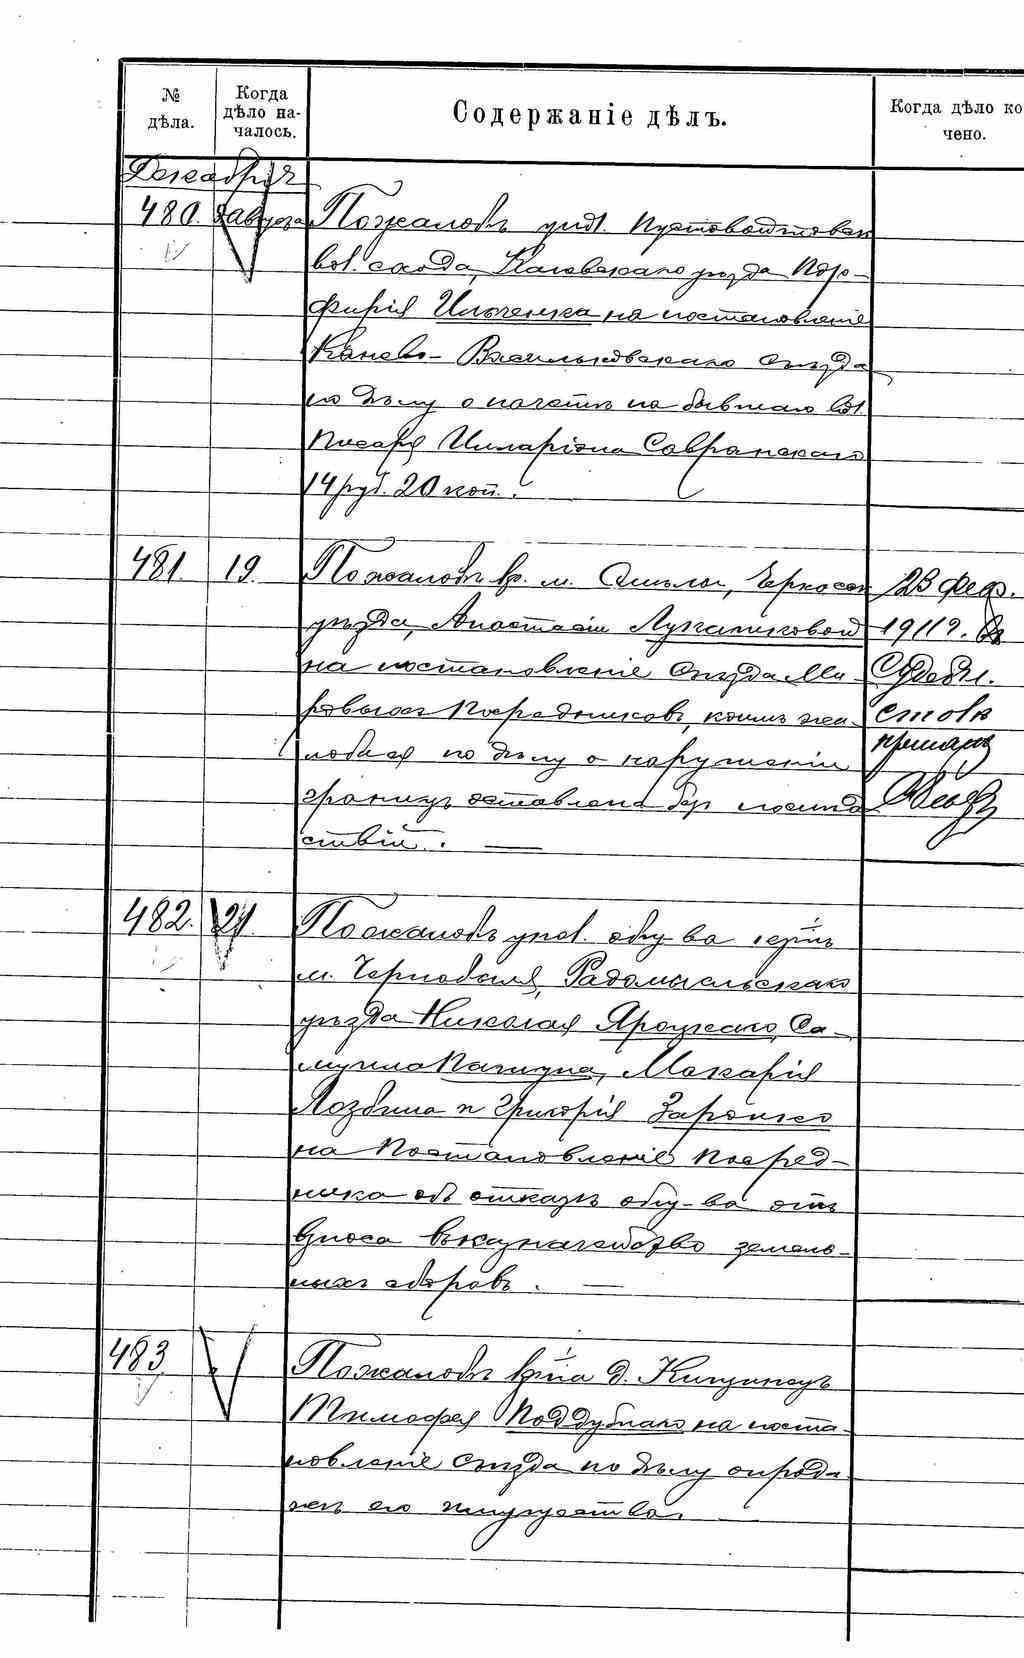 № дѣла.
Когда дѣло на-
чалось.
Содержаніе дѣлъ.
Когда дѣло ко
чено.
Декабря
480. 8 августа По жалобѣ упол. Пустовойтовск
вол. схода, Каневскаго уѣзда Пор-
фирія Ильченка на постановленіе
Канево-Васильковскаго Съѣзда
по дѣлу о начетѣ на бывшаго вол.
писаря Илларіона Савранскаго
14 руб. 20 коп.
481. 19. По жалобѣ кр. м. Смѣлы, Черкасск
уѣзда, Анастасіи Лукашиковой
на постановленіе Съѣзда Ми-
ровыхъ Посредниковъ, коимъ жа-
лоба ея по дѣлу о нарушеніи
границъ оставлена безъ послѣд
ствій. —
23 Фев.
1911 г.
482. 21. По жалобѣ упол. общ-ва кр-нъ
м. Чернобыля, Радомысльскаго
уѣзда Николая Яроцкаго, Са-
муила Пачиуна, Макарія
Лозбина и Григорія Заронко
на Постановленіе Посред-
ника объ отказѣ общ-ва отъ
взноса въ казначейство земель-
ныхъ сборовъ. —
483 По жалобѣ кр-на д. Кищинецъ
Тимофея Поддубнаго на поста-
новленіе съѣзда по дѣлу о прода
жѣ его имущества.